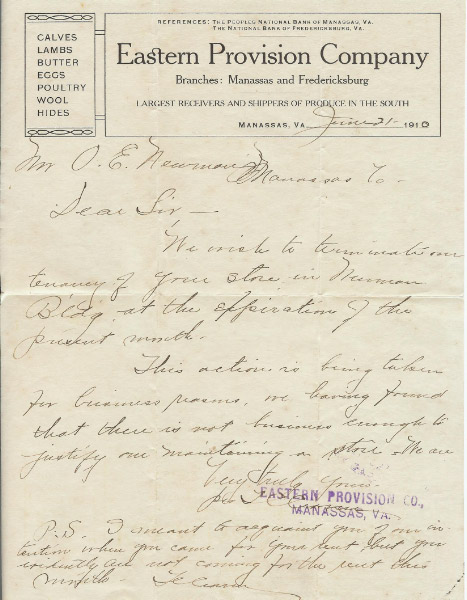 REFERENCES: THE PEOPLES NATIONAL BANK OF MANASSAS, VA.
THE NATIONAL BANK OF FREDERICKSBURG, VA.
CALVES
LAMBS
BUTTER
EGGS
POULTRY
WOOL
HIDES
Eastern Provision Company
Branches: Manassas and Fredericksburg
LARGEST RECEIVERS AND SHIPPERS OF PRODUCE IN THE SOUTH
MANASSAS, VA. June 21- 1910
Mr O. E. Newman
Manassas Va -
Dear Sir —
We wish to terminate our
tenancy of your store in Newman
Bldg. at the expiration of the
present month.
This action is being taken
for business reasons, we having found
that there is not business enough to
justify our maintaining a store. We are
Very truly yours
per
EASTERN PROVISION CO.,
MANASSAS, VA.
P.S. I meant to acquaint you of our in-
tention when you came for your rent, but you
evidently are not coming for the rent this
month -